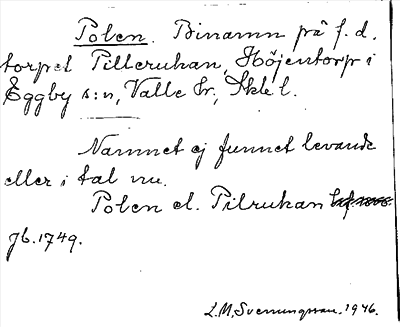 Polen. Binamn på f.d.
torpet Pilleruhan, Höjentorp i
Eggby s:n, Valle hr, Skbl.
Namnet ej funnet levande
eller i tal nu.
Polen el. Pilruhan
Jb. 1749.
L.M. Svenungsson. 1946.